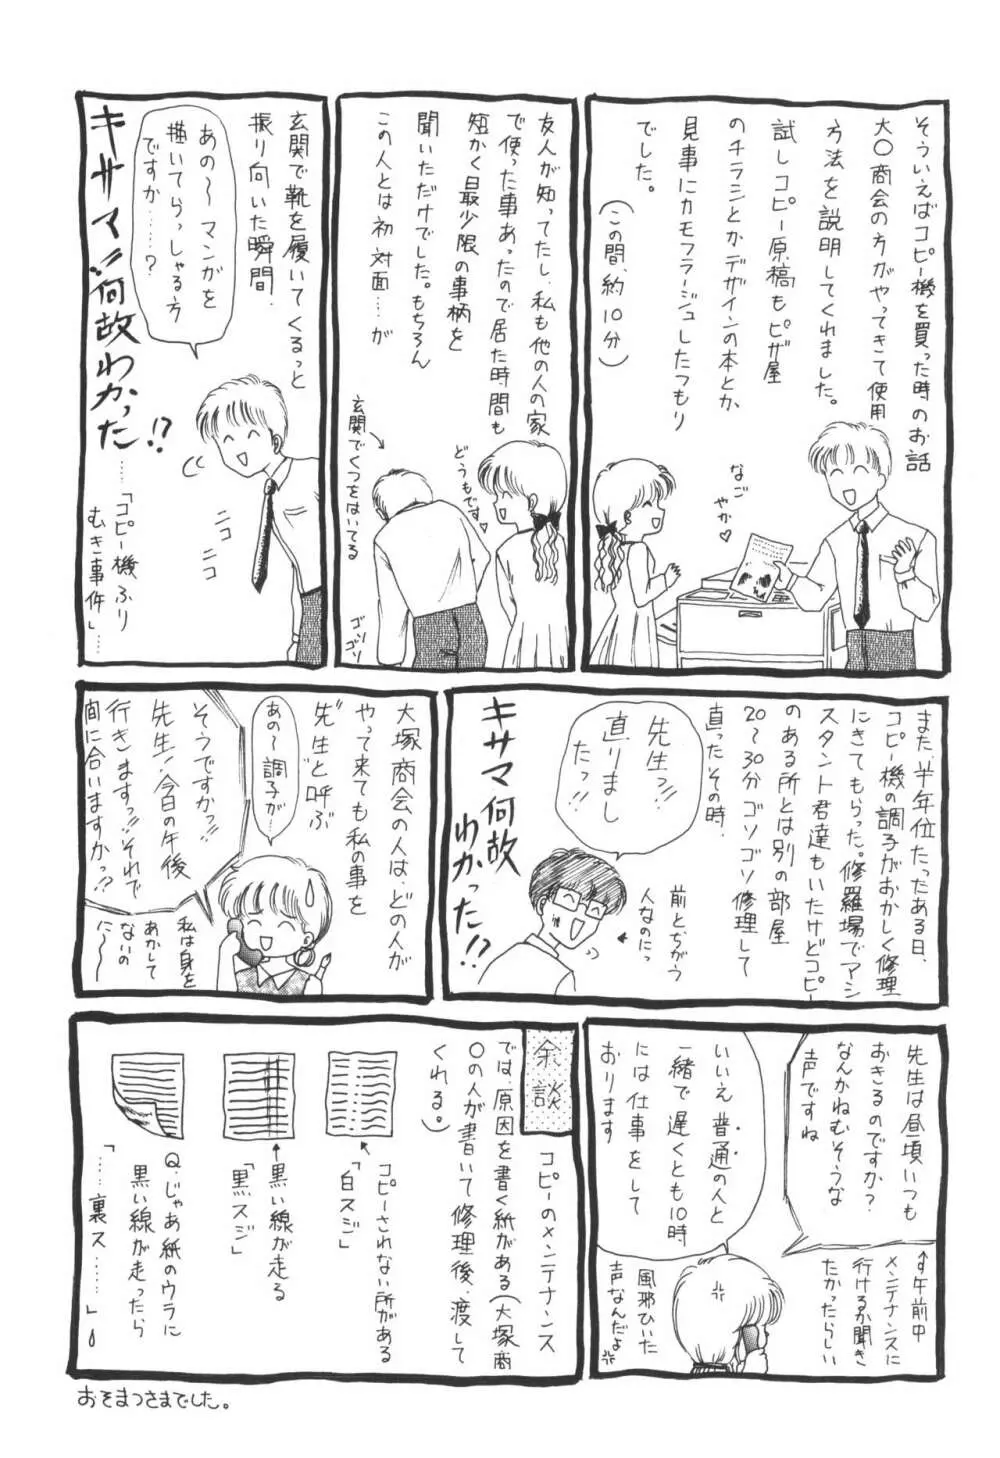 そういえばコピー機を買った時のお話
大〇商会の方がやってきて使用
方法を説明してくれました。
試しコピー原稿もピザ屋
のチラシとかデザインの本とか、
見事にカモフラージュしたつもり
でした。
(この間、約10分)
なご
やか♡
友人が知ってたし、私も他の人の家
で使った事あったので居た時間も
短かく最少限の事柄を
聞いただけでした。もちろん
この人とは初対面……が
どうもです♡
玄関でくつをはいてる
ゴソ
ゴソ
玄関で靴を履いてくるっと
振り向いた瞬間、
あの〜マンガを
描いてらっしゃる方
ですか……?
キサマ!!何故わかった!?
……「コピー機ふり
むき事件」……
ニコ
ニコ
また、半年位たったある日、
コピー機の調子がおかしく修理
にきてもらった。修羅場でアシ
スタント君達もいたけどコピー
のある所とは別の部屋
20〜30分ゴソゴソ修理して
直ったその時、
先生っ!!
直りまし
たっ!!
前とちがう
人なのにっ
キサマ何故
わかった!?
大塚商会の人は、どの人が
やって来ても私の事を
"先生"と呼ぶ
あの〜調子が…
そうですかっ!!
先生!今日の午後
行きますっ!!それで
間に合いますかっ!?
私は身を
あかして
ないの
に〜
先生は昼頃いつも
おきるのですか?
なんかねむそうな
声ですね
↑す午前中
メンテナンスに
行けるか聞き
たかったらしい
いいえ普通の人と
一緒で遅くとも10時
には仕事をして
おります
風邪ひいた
声なんだよ
余談
コピーのメンテナンス
では、原因を書く紙がある(大塚商
〇の人が書いて修理後、渡して
くれる。)
コピーされない所がある
「白スジ」
黒い線が走る
「黒スジ」
Q.じゃあ紙のウラに
黒い線が走ったら
「……裏ス……」
おそまつさまでした。